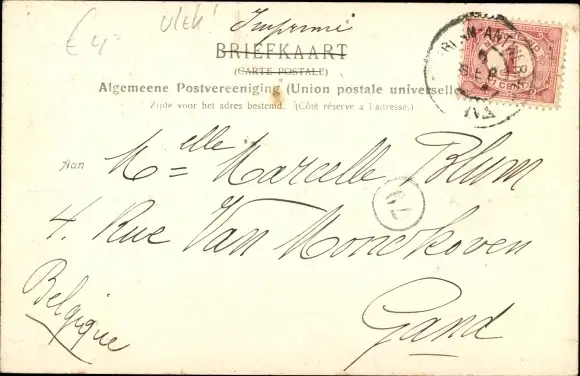 € 4,-
Imprimé
BRIEFKAART
(CARTE POSTALE)
Algemeene Postvereeniging (Union postale universelle)
Zijde voor het adres bestemd. (Côté réservé a l'adresse.)
Aan Mlle Marcelle Blum
4. Rue Van Monckoven
Gand
Belgique
67